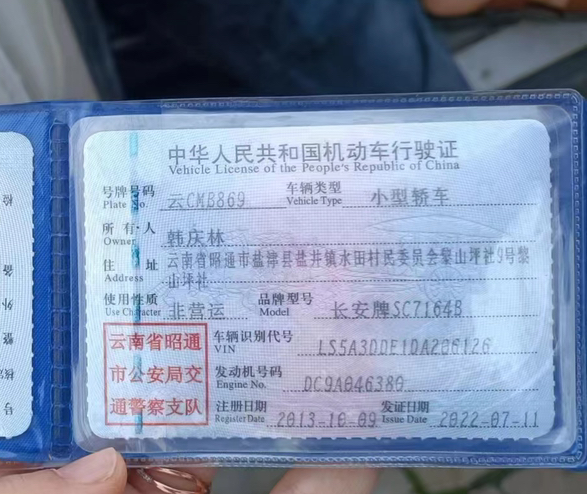 中华人民共和国机动车行驶证
Vehicle License of the People's Republic of China
号牌号码 云CMB869 车辆类型 小型轿车
Plate No. Vehicle Type
所有人 韩庆林
Owner
住址 云南省昭通市盐津县盐井镇水田村民委员会黎山坪社9号黎
Address 山坪社
使用性质 非营运 品牌型号 长安牌SC7164B
Use Character Model
云南省昭通
市公安局交
通警察支队
车辆识别代号 LS5A3DDE1DA206126
VIN
发动机号码 DC9A046380
Engine No.
注册日期 2013-10-09 发证日期 2022-07-11
Register Date Issue Date
检
备
外
整
核
号